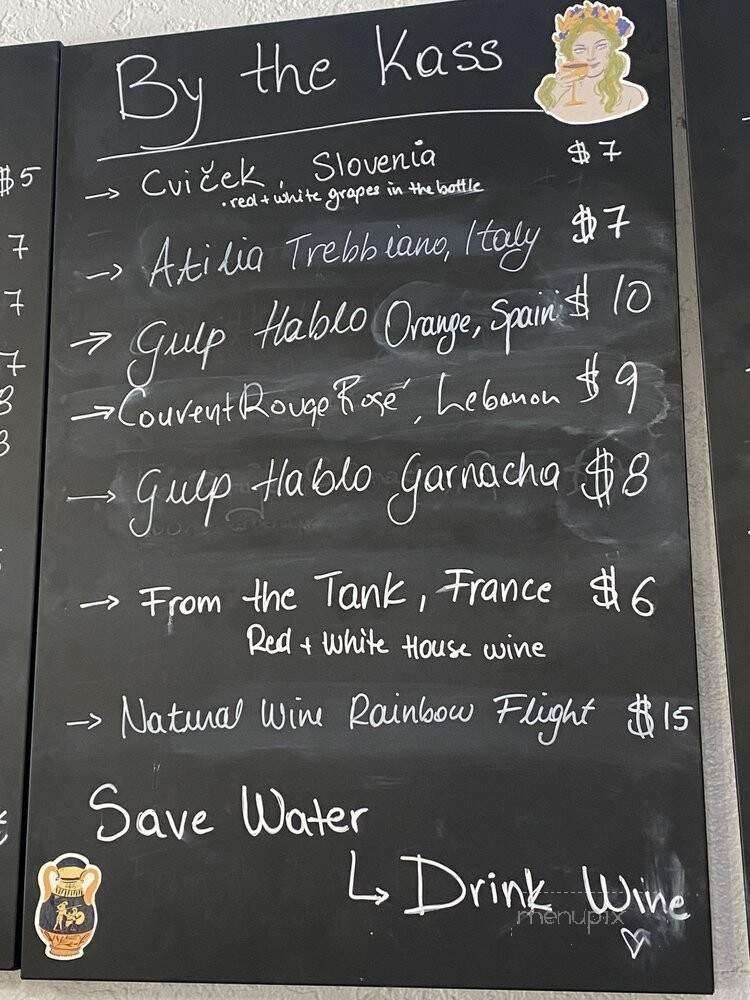 By the Kass
→ Cviček, Slovenia $7
• red + white grapes in the bottle
→ Atilia Trebbiano, Italy $7
→ Gulp Hablo Orange, Spain $10
→ Couvent Rouge Rosé, Lebanon $9
→ Gulp Hablo Garnacha $8
→ From the Tank, France $6
Red + White House wine
→ Natural Wine Rainbow Flight $15
Save Water
↳ Drink Wine
menupix
$5
7
7
7
8
8